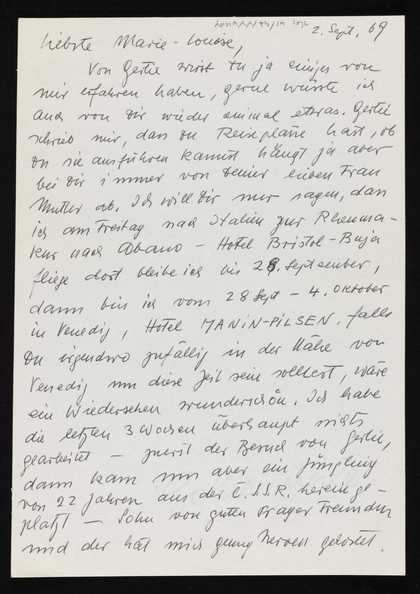 2. Sept. 69
liebste Marie-Louise,
Von Gertie wirst Du ja einiges von
mir erfahren haben, gerne wüsste ich
auch von Dir wieder einmal etwas. Gertie
schrieb mir, dass Du Reisepläne hast, ob
Du sie ausführen kannst hängt ja aber
bei Dir immer von Deiner lieben Frau
Mutter ab. Ich will Dir nur sagen, dass
ich am Freitag nach Italien zur Rheuma-
kur nach Abano – Hotel Bristol-Buja
fliege dort bleibe ich bis 28. September,
dann bin ich vom 28 Sept – 4. Oktober
in Venedig, Hotel MANIN-PILSEN. falls
Du irgendwo zufällig in der Nähe von
Venedig um diese Zeit sein solltest, wäre
ein Wiedersehen wunderschön. Ich habe
die letzten 3 Wochen überhaupt nichts
gearbeitet – zuerst der Besuch von Gertie,
dann kam nun aber ein Jüngling
von 22 Jahren aus der Č.S.S.R. hereinge-
platzt – Sohn von guten Prager Freunden
und der hat mich genug Nerven gekostet.